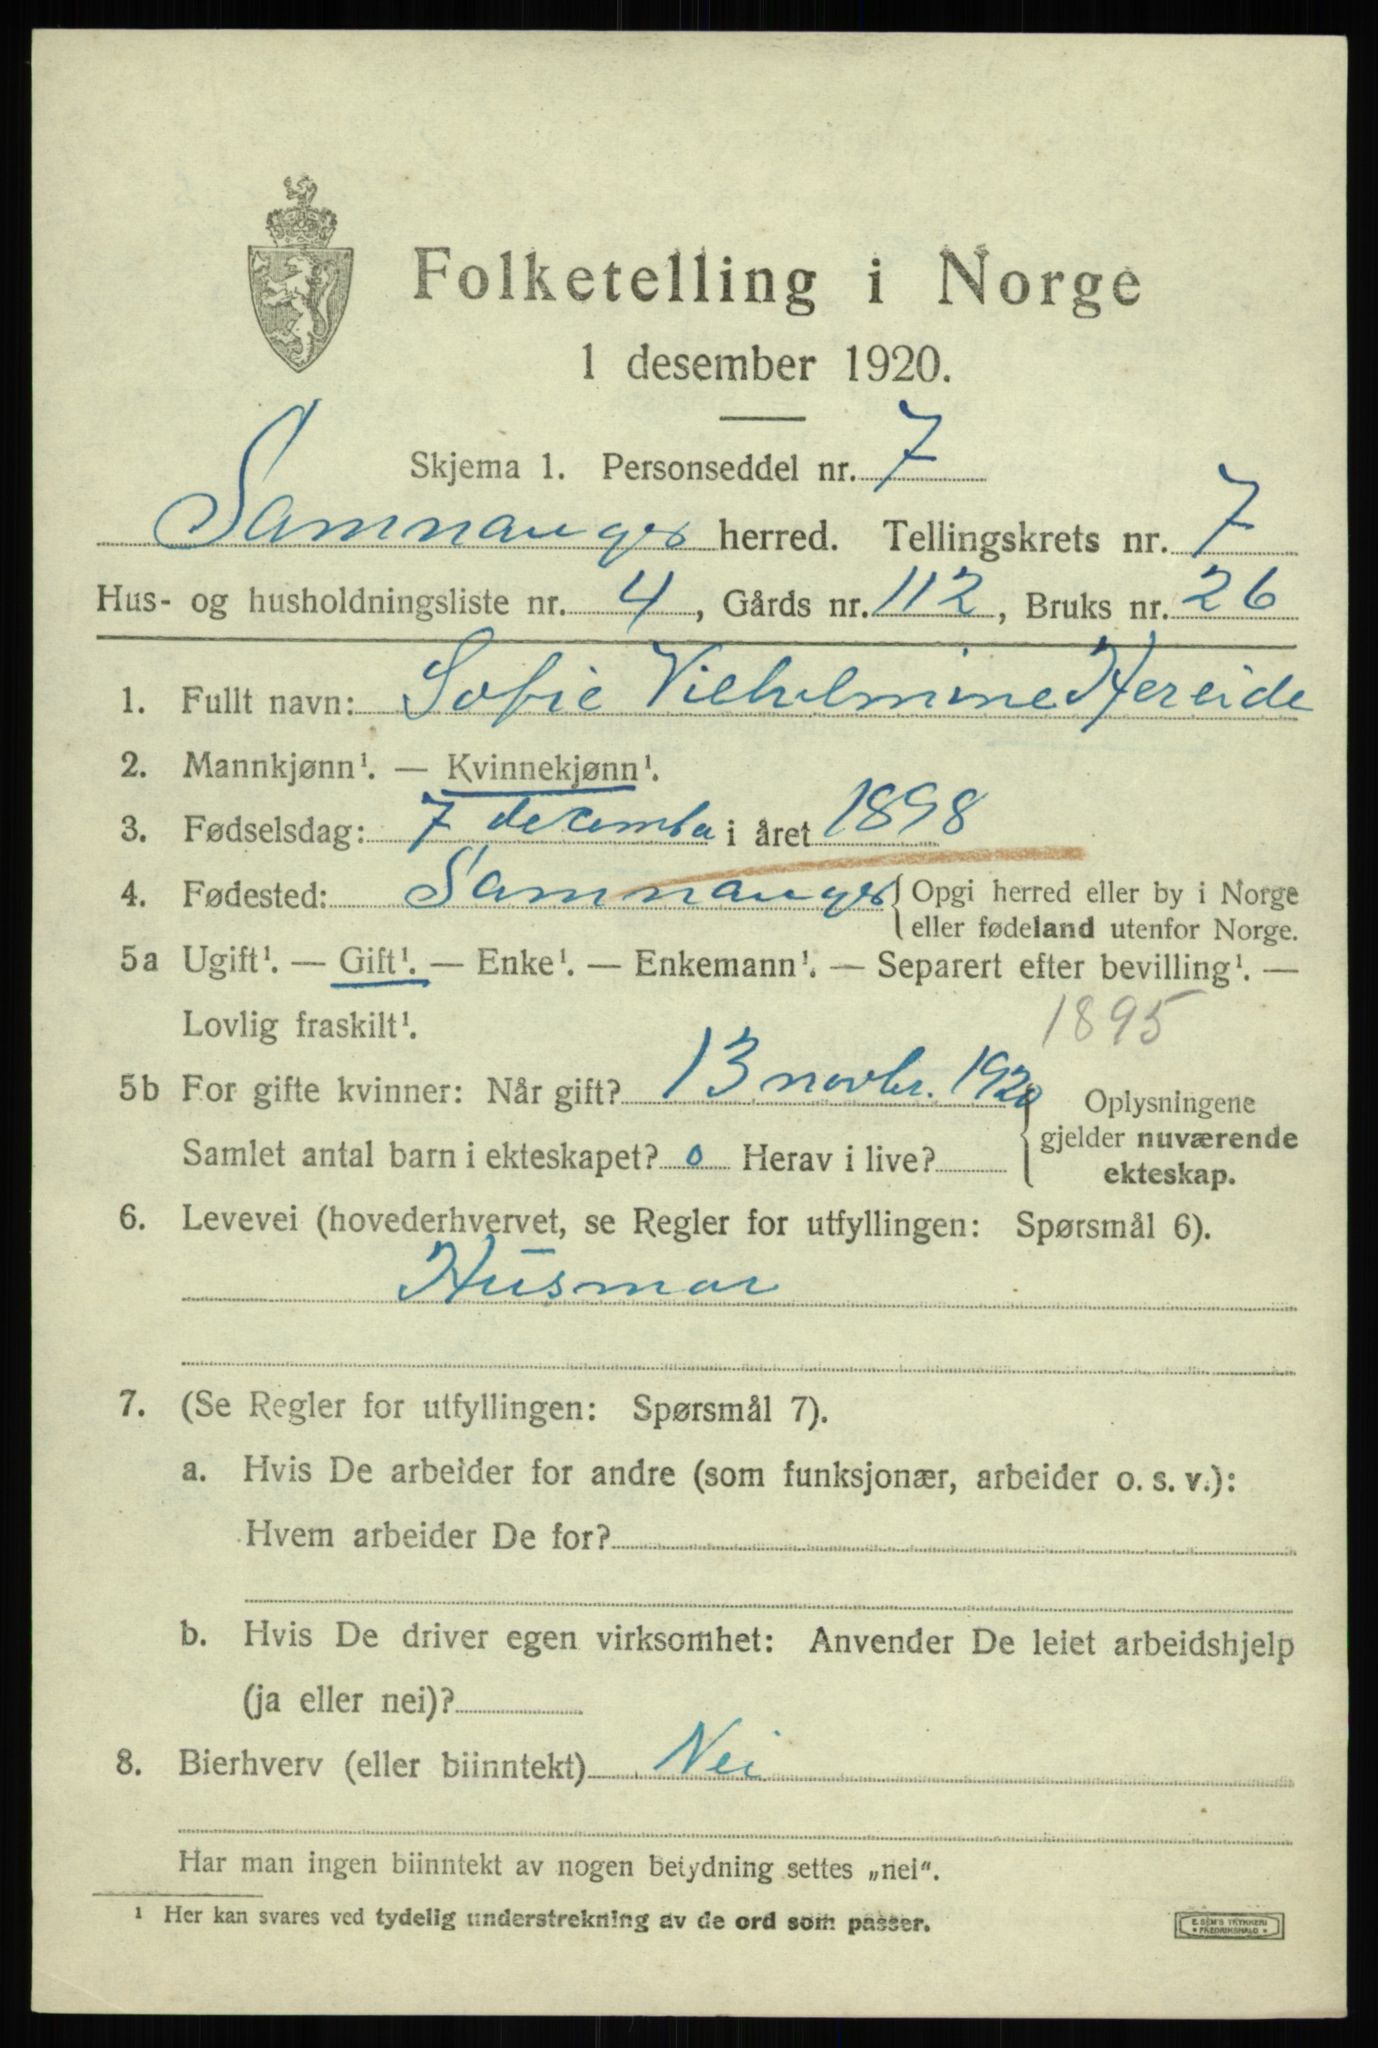 Folketelling i Norge
1 desember 1920.
Skjema 1. Personseddel nr. 7
Samnanger herred. Tellingskrets nr. 7
Hus- og husholdningsliste nr. 4, Gårds nr. 112, Bruks nr. 26
1. Fullt navn: Sofie Vilhelmine Hereide
2. Mannkjønn¹. — Kvinnekjønn¹.
3. Fødselsdag: 7 december i året 1898
4. Fødested: Samnanger { Opgi herred eller by i Norge
eller fødeland utenfor Norge.
5a Ugift¹. — Gift¹. — Enke¹. — Enkemann¹. — Separert efter bevilling¹. —
Lovlig fraskilt¹. 1895
5b For gifte kvinner: Når gift? 13 novbr. 1920 { Oplysningene
gjelder nuværende
Samlet antal barn i ekteskapet? 0 Herav i live?
ekteskap.
6. Levevei (hovederhvervet, se Regler for utfyllingen: Spørsmål 6).
Husmor
7. (Se Regler for utfyllingen: Spørsmål 7).
a. Hvis De arbeider for andre (som funksjonær, arbeider o. s. v.):
Hvem arbeider De for?
b. Hvis De driver egen virksomhet: Anvender De leiet arbeidshjelp
(ja eller nei)?
8. Bierhverv (eller biinntekt) Nei
Har man ingen biinntekt av nogen betydning settes „nei“.
¹ Her kan svares ved tydelig understrekning av de ord som passer.
E. SEM'S TRYKKERI
• FREDRIKSHALD •